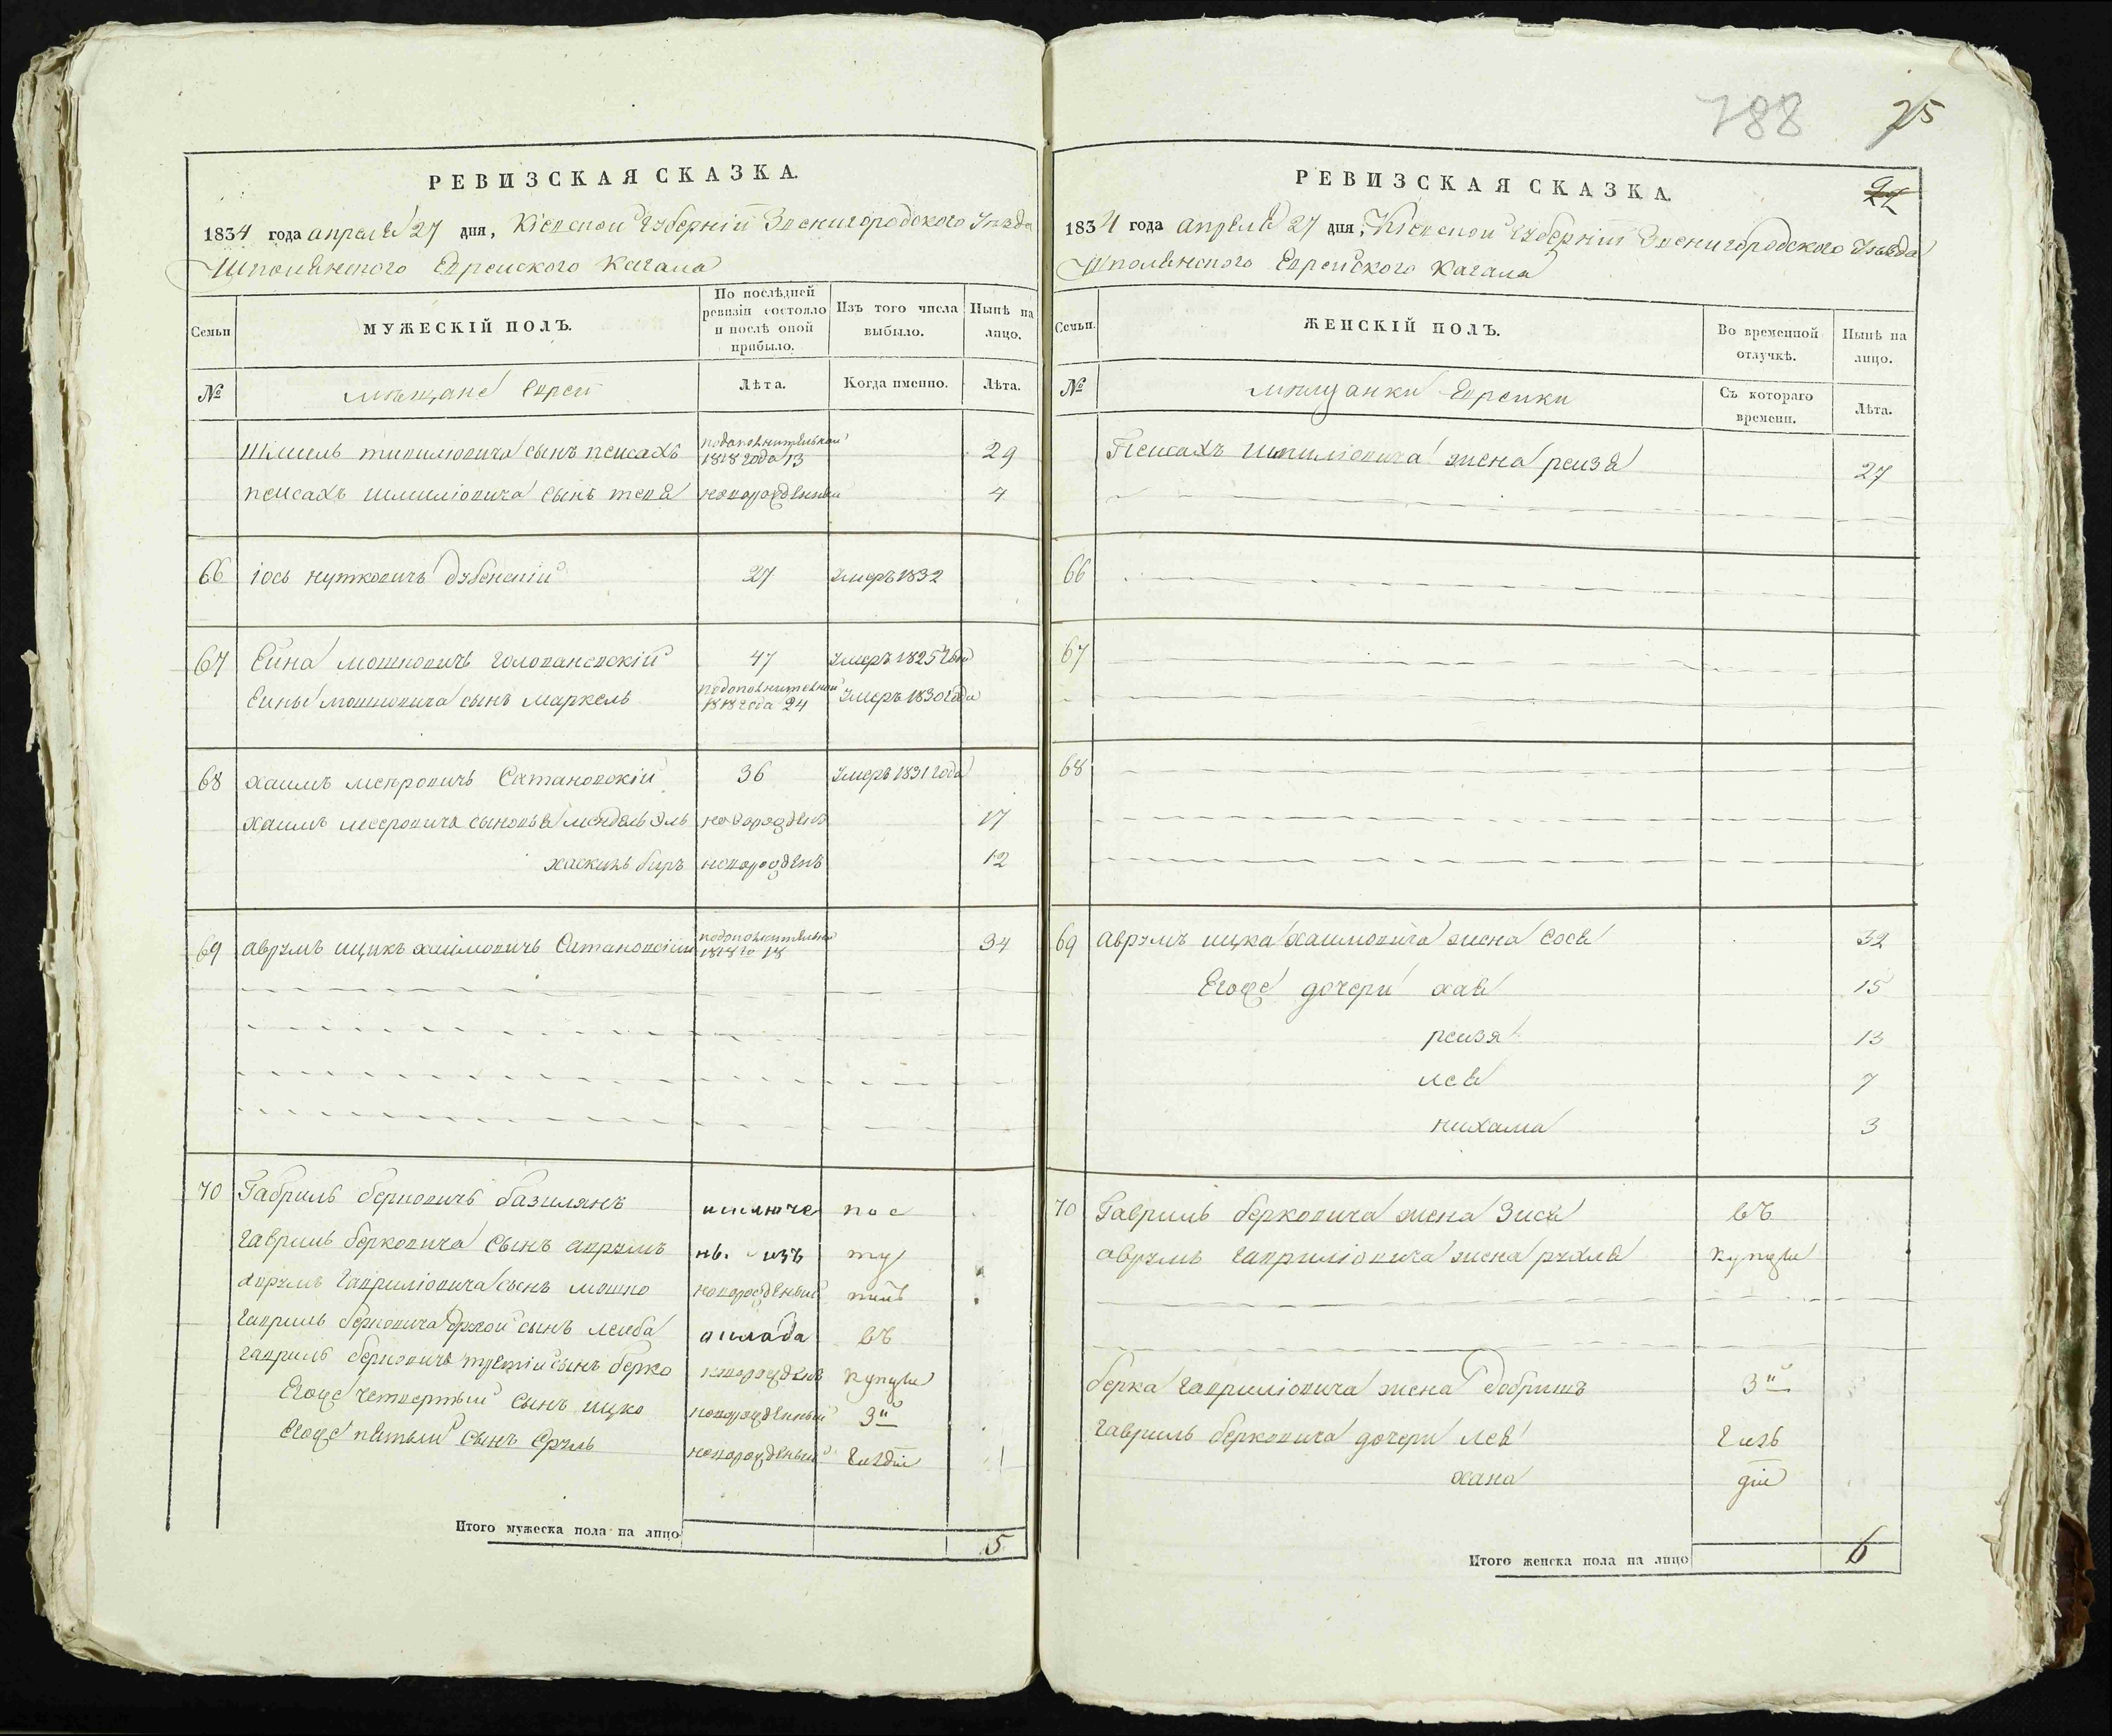 788
25
РЕВИЗСКАЯ СКАЗКА.
1834 года апреля 27 дня, Кіевской Губерніи Звенигородского Уезда
Шполянского Еврейского Кагала
Семьи
МУЖЕСКІЙ ПОЛЪ.
По послѣдней ревизіи состояло и послѣ оной прибыло.
Изъ того числа выбыло.
Нынѣ на лицо.
№
мѣщане Евреи
Лѣта.
Когда именно.
Лѣта.
Шмиль сынъ Пейсахъ 1818 года 13 29
Пейсахъ Шмиліовича сынъ новорожденный 4
66 Іось Нутковичъ Дубенскій 27 Умеръ 1832
67 Ейна Мошковичъ Голованевскій 47 Умеръ 1825 года
Ейны Мошковича сынъ Маркель подополнительной 1818 года 24 Умеръ 1830 года
68 Хаимъ Меѣровичъ Сатановскій 36 Умеръ 1831 года
Хаимъ Меѣровича сыновья Мендель Эль новорожденъ 17
Хаскиль Беръ новорожденъ 12
69 Аврумъ Ицикъ Хаимовичъ Сатановскій подополнительной 1818 го 18 34
70 Габриль Берковичъ Базилянъ исключе пос
Гавриль Берковича сынъ Аврумъ нъ. изъ ту
Аврумъ Гавриліовича сынъ Мошко новорожденный пилъ
Гавриль Берковича другой сынъ Лейба оклада въ
Гавриль Берковичъ третій сынъ Берко новорожденъ купцы
Егоже четвертый сынъ Ицко новорожденный 3й
Егоже пятый сынъ Сруль новорожденный Гилдіи
Итого мужеска пола на лицо 5
РЕВИЗСКАЯ СКАЗКА.
1834 года Апреля 27 дня, Кіевской Губерніи Звенигородского Уезда
Шполянского Еврейского Кагала
Семьи.
ЖЕНСКІЙ ПОЛЪ.
Во временной отлучкѣ.
Нынѣ на лицо.
№
мѣщанки Еврейки
Съ котораго времени.
Лѣта.
Пейсахъ Шмиліовича жена Рейзя 27
66
67
68
69 Аврумъ Ицка Хаимовича жена Сося 32
Егоже дочери Хая 15
Рейзя 13
Лея 7
Нихама 3
70 Гавриль Берковича жена Зися въ
Аврумъ Гавриліовича жена Рухля купцы
Берка Гавриліовича жена Добришъ 3й
Гавриль Берковича дочери Лея Гиль
Хана діи
Итого женска пола на лицо 6